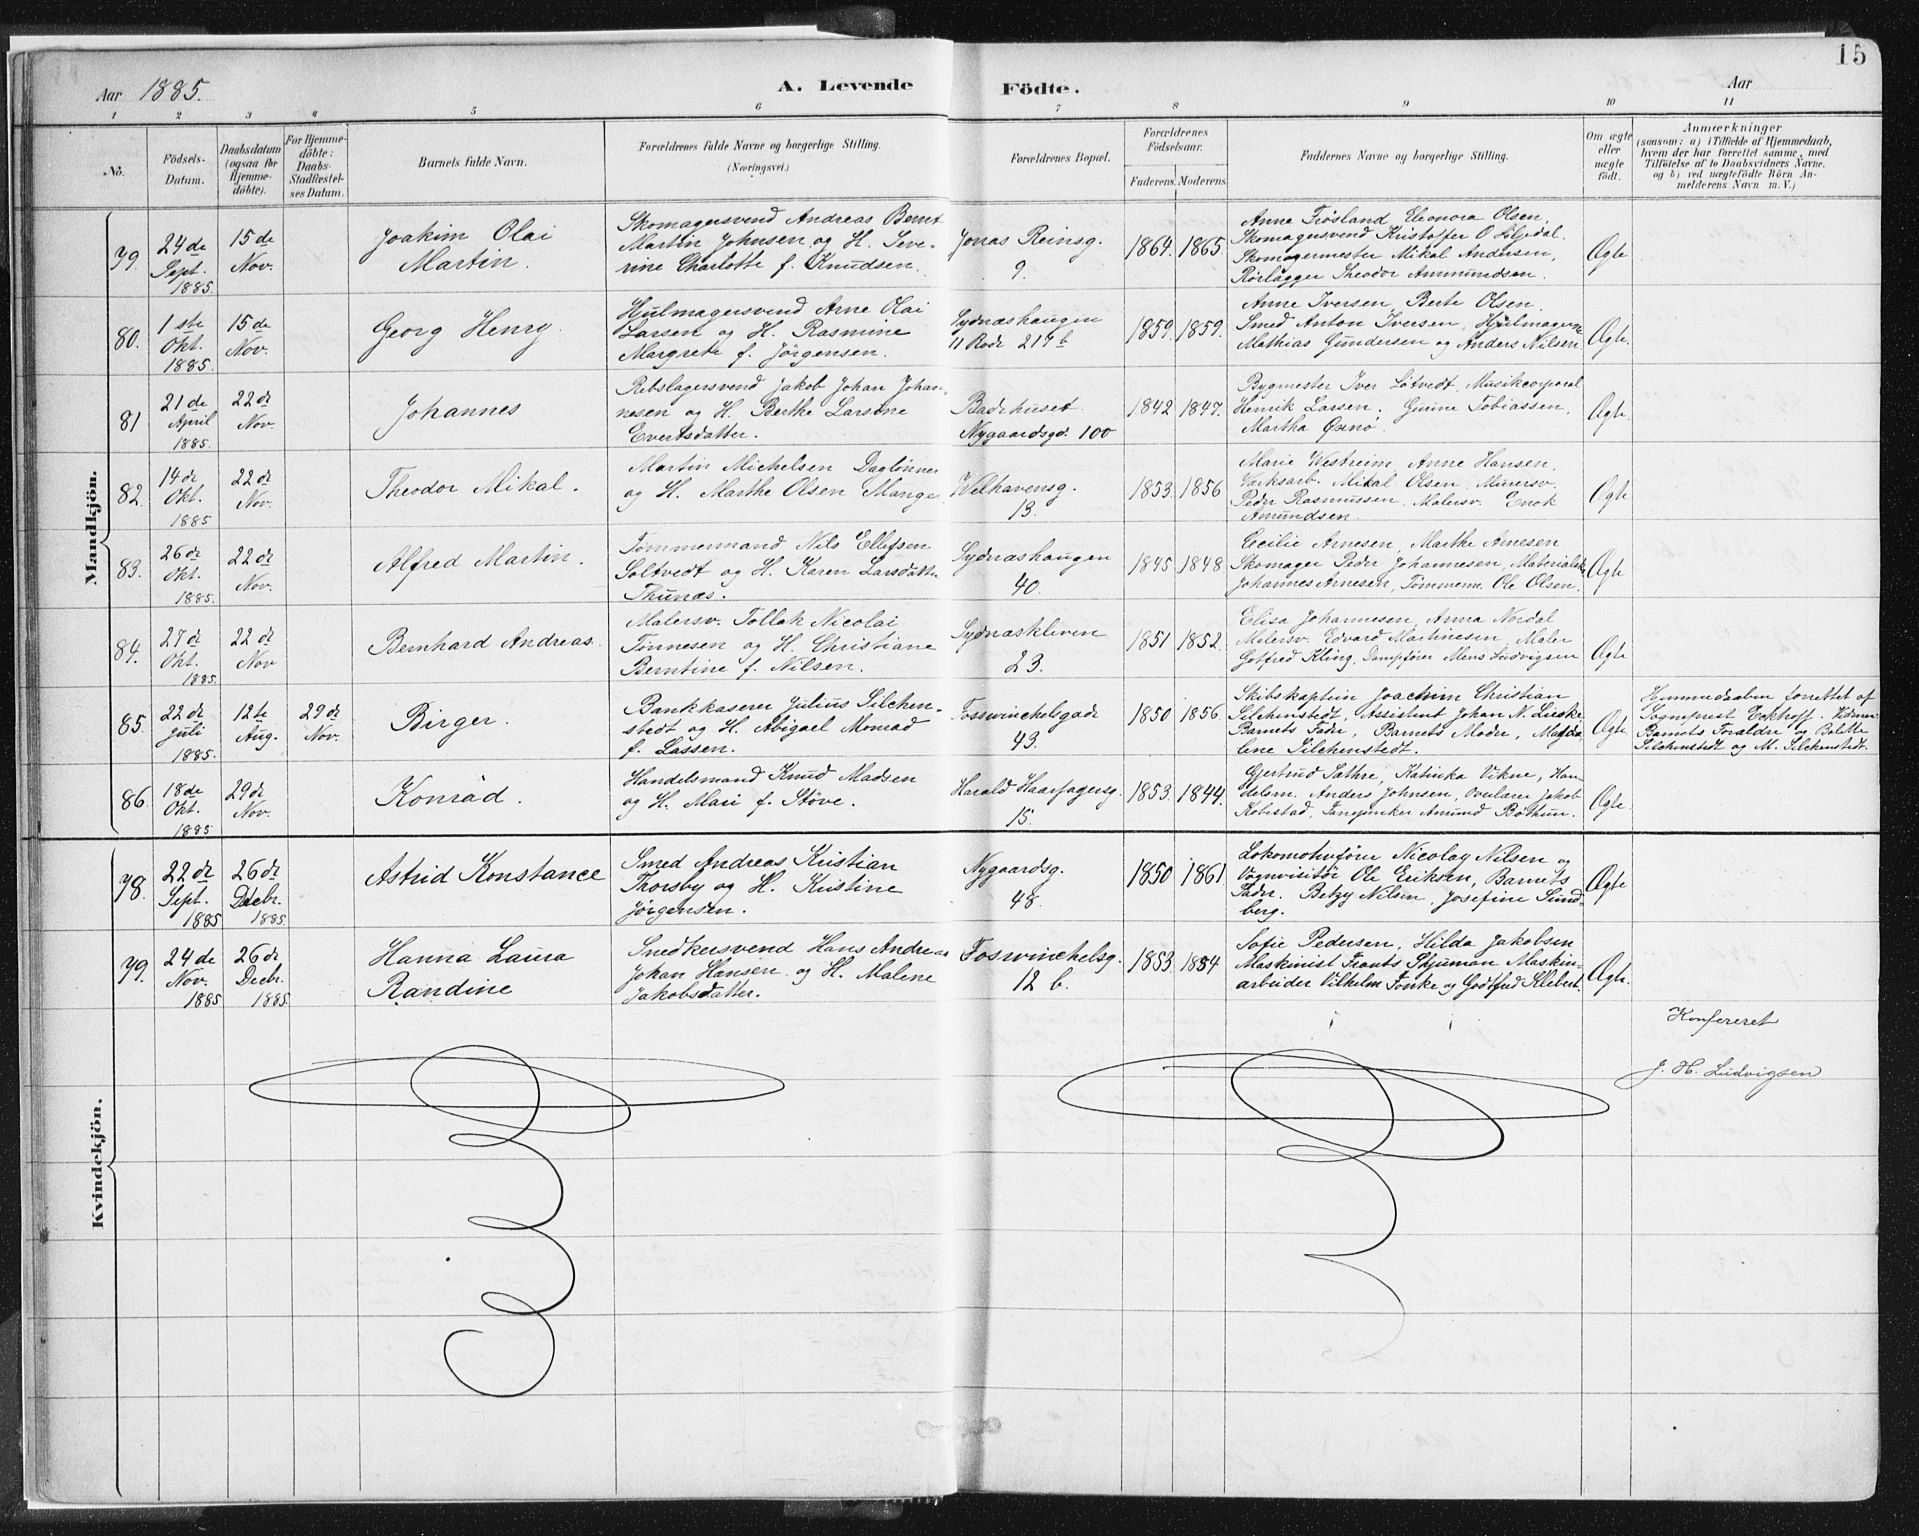 15
Aar 1885.
A. Levende Födte.
Aar
1 2 3 4 5 6 7 8 9 10 11
No.
Födsels-Datum.
Daabsdatum (ogsaa for Hjemmedöbte).
For Hjemmedöbte: Daabs-Stadfæstelses Datum.
Barnets fulde Navn.
Forældrenes fulde Navne og borgerlige Stilling.
(Næringsvei.)
Forældrenes Bopæl.
Forældrenes Födselsaar.
Faderens. Moderens.
Faddernes Navne og borgerlige Stilling.
Om ægte eller uægte födt.
Anmærkninger
(saasom: a) i Tilfælde af Hjemmedaab, hvem der har forrettet samme, med Tilföielse af to Daabsvidners Navne, og b) ved uægtefödte Börn Anmelderens Navn m. V.)
Mandkjön.
79. 24de Sept. 1885. 15de Nov.
Joakim Olai
Martin.
Skomagersvend Andreas Bernt
Martin Johnsen og H. Seve-
rine Charlotte f. Knudsen.
Jonas Reinsg.
9.
1864. 1865.
Anne Frøsland, Eleonora Olsen,
Skomagersvend Kristoffer O Liljedal,
Skomagermester Mikal Andersen,
Rørlægger Theodor Ammundsen.
Ægte
80. 1ste Okt. 1885. 15de Nov.
Georg Henry.
Hjulmagersvend Arne Olai
Larsen og H. Rasmine
Margrete f. Jørgensen.
Sydnæshaugen
11 Rode 217 b
1859. 1859.
Anne Iversen, Berte Olsen,
Smed Anton Iversen, Hjulmagerne
Mathias Gundersen og Anders Nilsen
Ægte.
81 21de April 1885. 22de Nov.
Johannes
Rebslagersvend Jakob Johan Johan-
nesen og H. Berthe Larsine
Evertsdatter.
Badehuset
Nygaardsgd. 100
1842 1847.
Bygmester Iver Løtvedt, Musikcorporal
Henrik Larsen, Gurine Tobiassen,
Martha
Ægte
82. 14de Okt. 1885 22de Nov.
Theodor Mikal.
Martin Michelsen Daglønner
og H. Marthe Olsen Mange
Welhavensg.
13.
1853. 1856
Marie Westreim, Anne Hansen,
Værksarb. Mikal Olsen, Murersv.
Peder Rasmussen, Malersv. Enok
Amundsen.
Ægte
83. 26de Okt. 1885. 22de Nov.
Alfred Martin.
Tømmermand Nils Ellefsen
Soltvedt og H. Karen Larsdatter
Thunæs.
Sydnæshaugen
40.
1845 1848
Cecilie Arnesen, Marthe Arnesen
Skomager Peder Johannesen,
Johannes Arnesen, Tømmerm. Ole Olsen.
Ægte
84. 27de Okt. 1885. 22de Nov
Bernhard Andreas.
Malersv. Tollak Nicolai
Tønnesen og H. Christiane
Berntine f. Nilsen.
Sydnæskleven
23.
1851 1852.
Elisa Johannesen, Anna Nordal
Malersv. Edvard Martinesen, Maler
Gotfred Kling, Dampfører Mons Ludvigsen
Ægte
85. 22de Juli 1885. 12te Aug. 29de Nov.
Birger.
Bankkaserer Julius Silchen-
stedt og H. Abigael Monrad
f. Lassen.
Fosswinchelsgade
43.
1850 1856.
Skibskaptein Joachim Christian
Silchenstedt, Assistent Johan N. Liedke
Barnets Fader, Barnets Moder, Magda-
lene Silchenstedt.
Ægte
Hjemmedaaben forrettet af
Sogneprest Eckhoff. Vidner
Barnets Forældre og Bolette
Silchenstedt og M. Silchenstedt.
86. 18de Okt. 1885 29de Nov.
Konrad.
Handelsmand Knud Madsen
og H. Mari f. Støve.
Harald Haarfagersg.
15.
1853. 1844.
Gjertrud Sathre, Katinka Vikne, Han-
delsm. Anders Johnsen, Overlærer Jakob
Kobestad, Fanejunker Amund Bøthun.
Ægte.
Kvindekjön.
78. 22de Sept. 1885 26de Decbr. 1885.
Astrid Konstance
Smed Andreas Kristian
Thorsby og H. Kristine
Jørgensen.
Nygaardsg.
48.
1850 1861
Lokomotivfører Nicolay Nilsen og
Vognvisitør Ole Eriksen, Barnets
Fader. Betzy Nilsen, Josefine Sund-
berg.
Ægte
79. 24de Nov. 1885 26de Decbr. 1885.
Hanna Laura
Randine
Snedkersvend Hans Andreas
Johan Hansen og H. Malene
Jakobsdatter.
Foswinchelsg.
12 b.
1853. 1854
Sofie Pedersen, Hilda Jakobsen
Maskinist Frants Skjuman Maskin-
arbeider Vilhelm Fonke og Godtfred Klebert.
Ægte.
Konfereret
J. H. Ludvigsen